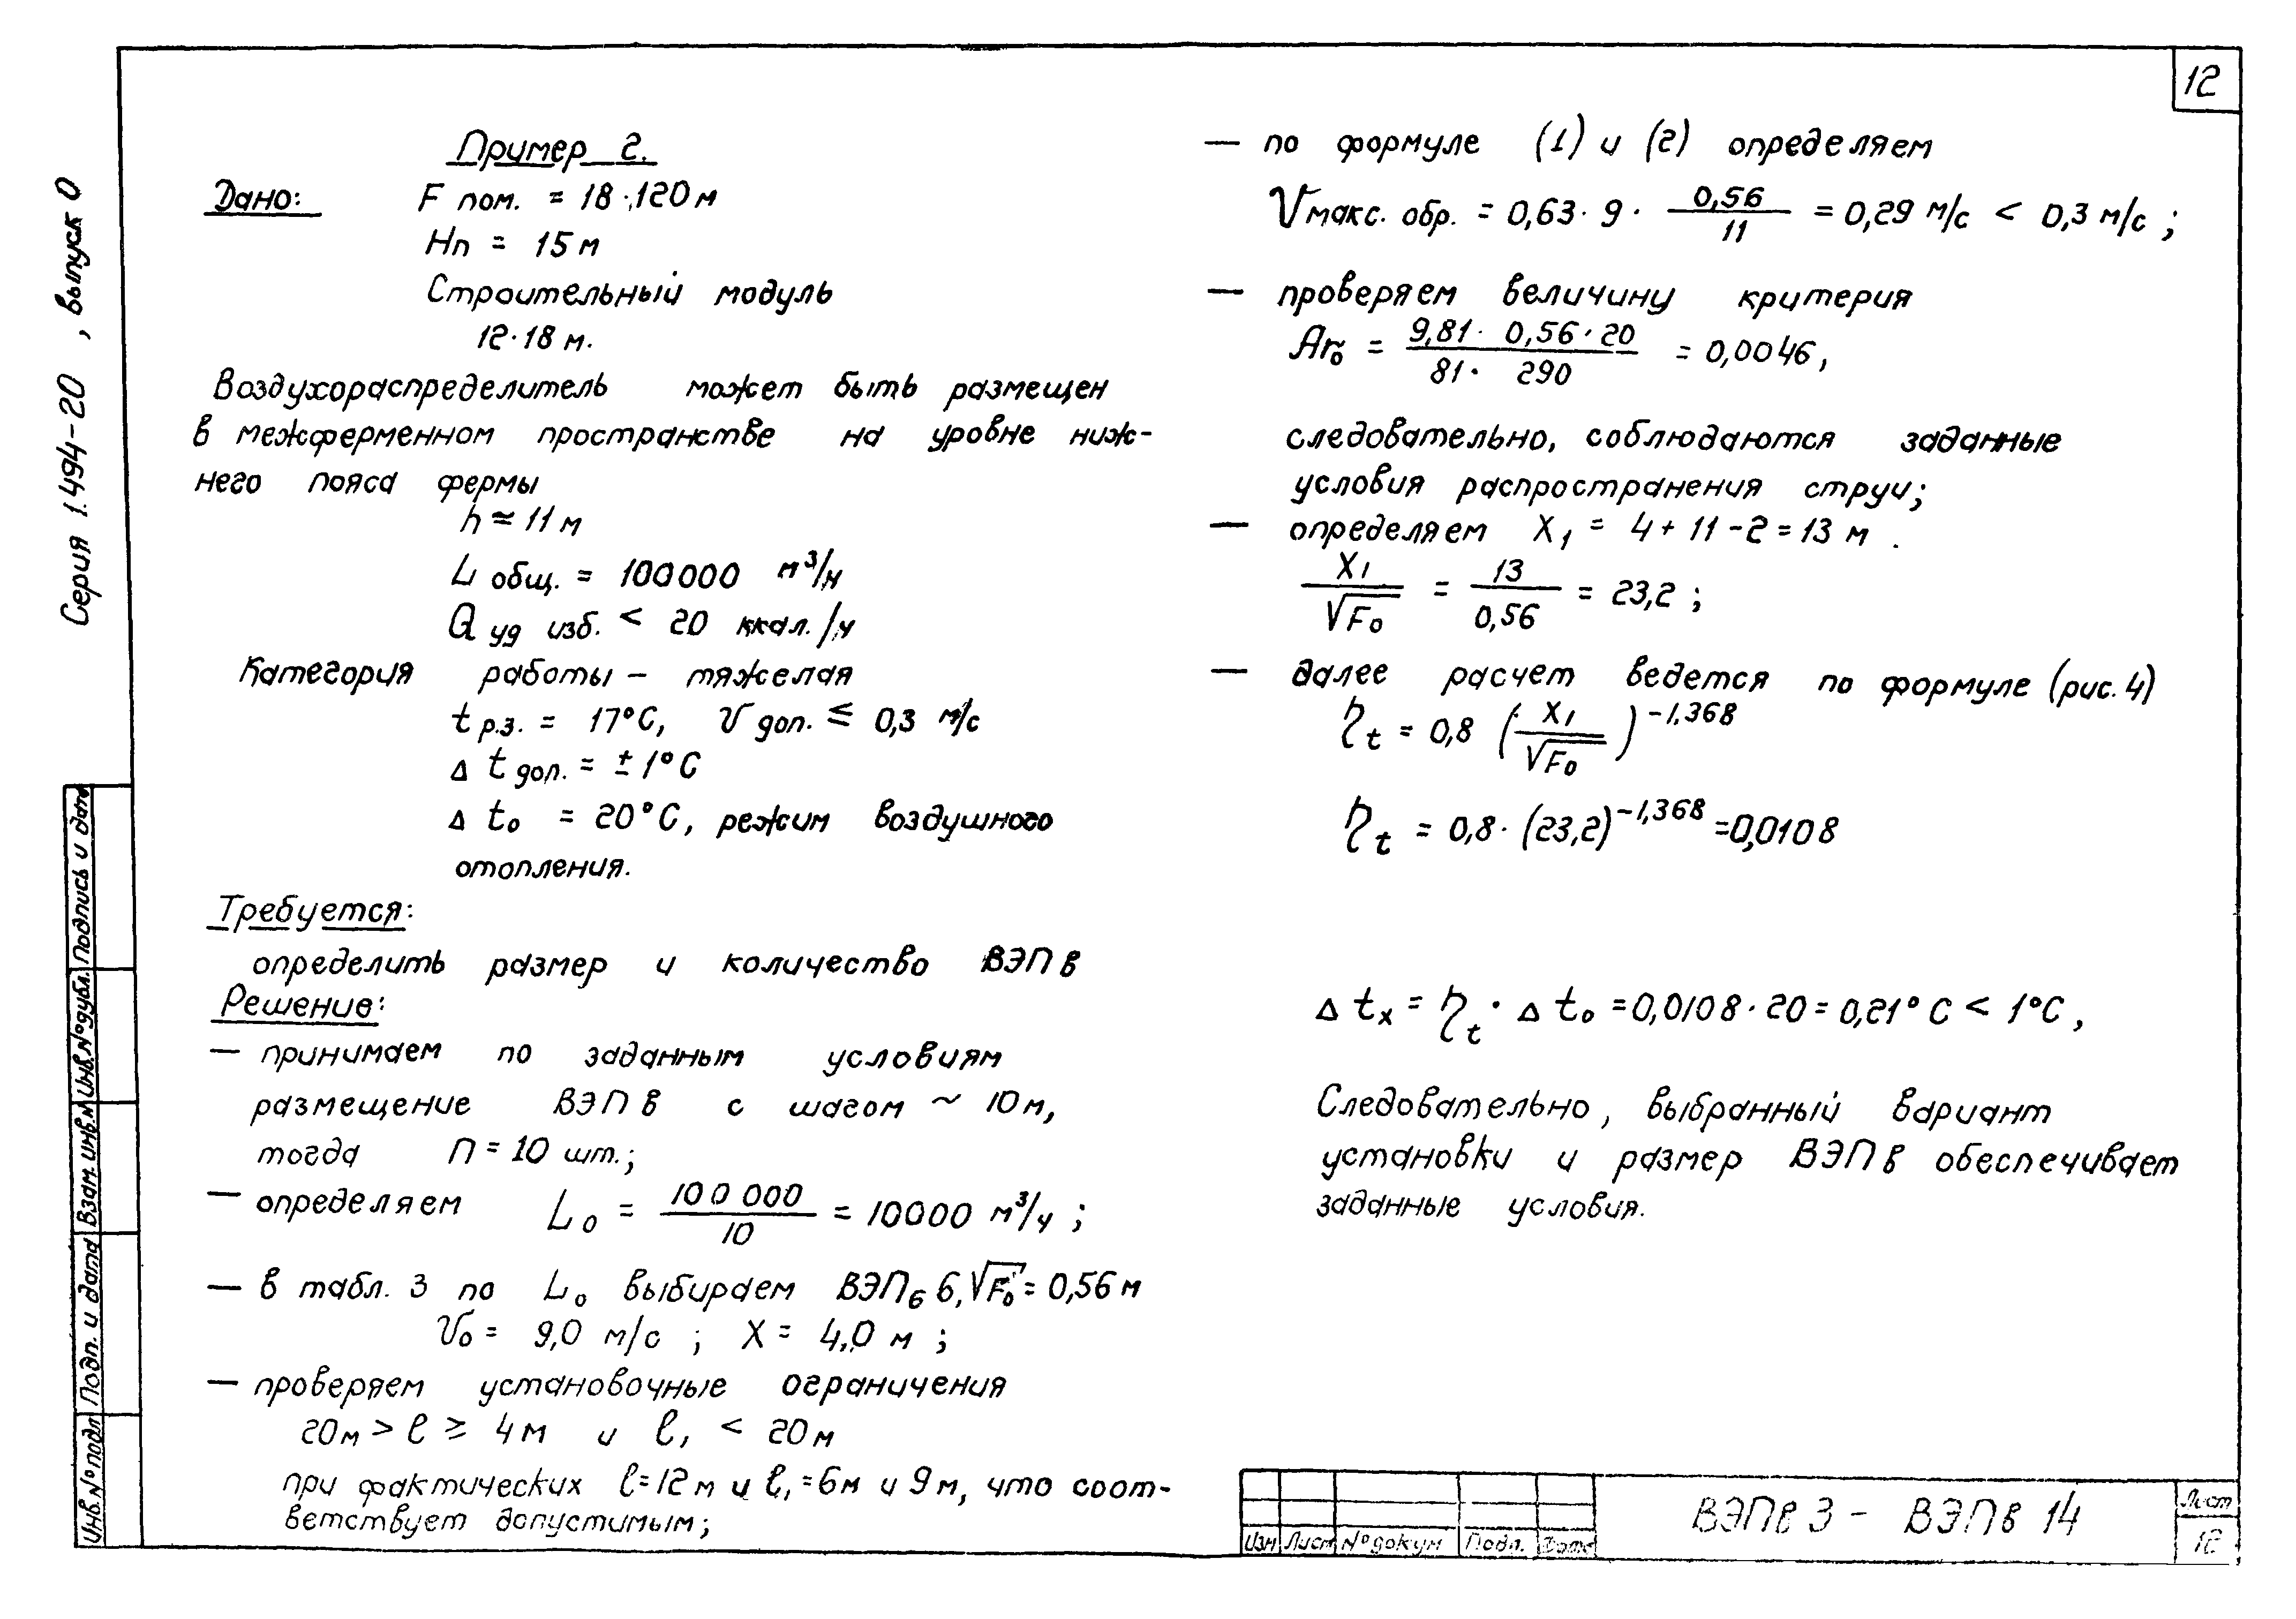 12
Серия 1.494-20, выпуск 0
Пример 2.
Дано: F пом. = 18·120 м
Нп = 15 м
Строительный модуль
12·18 м.
Воздухораспределитель может быть размещен
в межферменном пространстве на уровне ниж-
него пояса фермы
h ≈ 11 м
L общ. = 100000 м³/ч
Q уд изб. < 20 ккал./ч
Категория работы – тяжелая
t р.з. = 17°С, V доп. ≤ 0,3 м/с
Δ t доп. = ± 1°С
Δ t₀ = 20°С, режим воздушного
отопления.
Требуется:
определить размер и количество ВЭПв
Решение:
— принимаем по заданным условиям
размещение ВЭПв с шагом ~ 10 м,
тогда n = 10 шт.;
— определяем L₀ = 100 000 / 10 = 10000 м³/ч ;
— в табл. 3 по L₀ выбираем ВЭПв 6, √F₀ = 0,56 м
V₀ = 9,0 м/с ; X = 4,0 м ;
— проверяем установочные ограничения
20м > ℓ ≥ 4 м и ℓ₁ < 20 м
при фактических ℓ=12 м и ℓ₁=6м и 9 м, что соот-
ветствует допустимым;
— по формуле (1) и (2) определяем
Vмакс. обр. = 0,63 · 9 · 0,56 / 11 = 0,29 м/с < 0,3 м/с ;
— проверяем величину критерия
Ar₀ = 9,81 · 0,56 · 20 / 81 · 290 = 0,0046,
следовательно, соблюдаются заданные
условия распространения струи;
— определяем X₁ = 4 + 11 – 2 = 13 м .
X₁ / √F₀ = 13 / 0,56 = 23,2 ;
— далее расчет ведется по формуле (рис. 4)
η t = 0,8 (X₁ / √F₀)^–1,368
η t = 0,8 · (23,2)^–1,368 = 0,0108
Δ tх = η t · Δ t₀ = 0,0108 · 20 = 0,21°С < 1°С ,
Следовательно, выбранный вариант
установки и размер ВЭПв обеспечивает
заданные условия.
Инв. № подл Подп. и дата Взам. инв. № Инв. № дубл. Подпись и дата
Изм Лист № докум Подп. Дата
ВЭПв 3 – ВЭПв 14
Лист
12